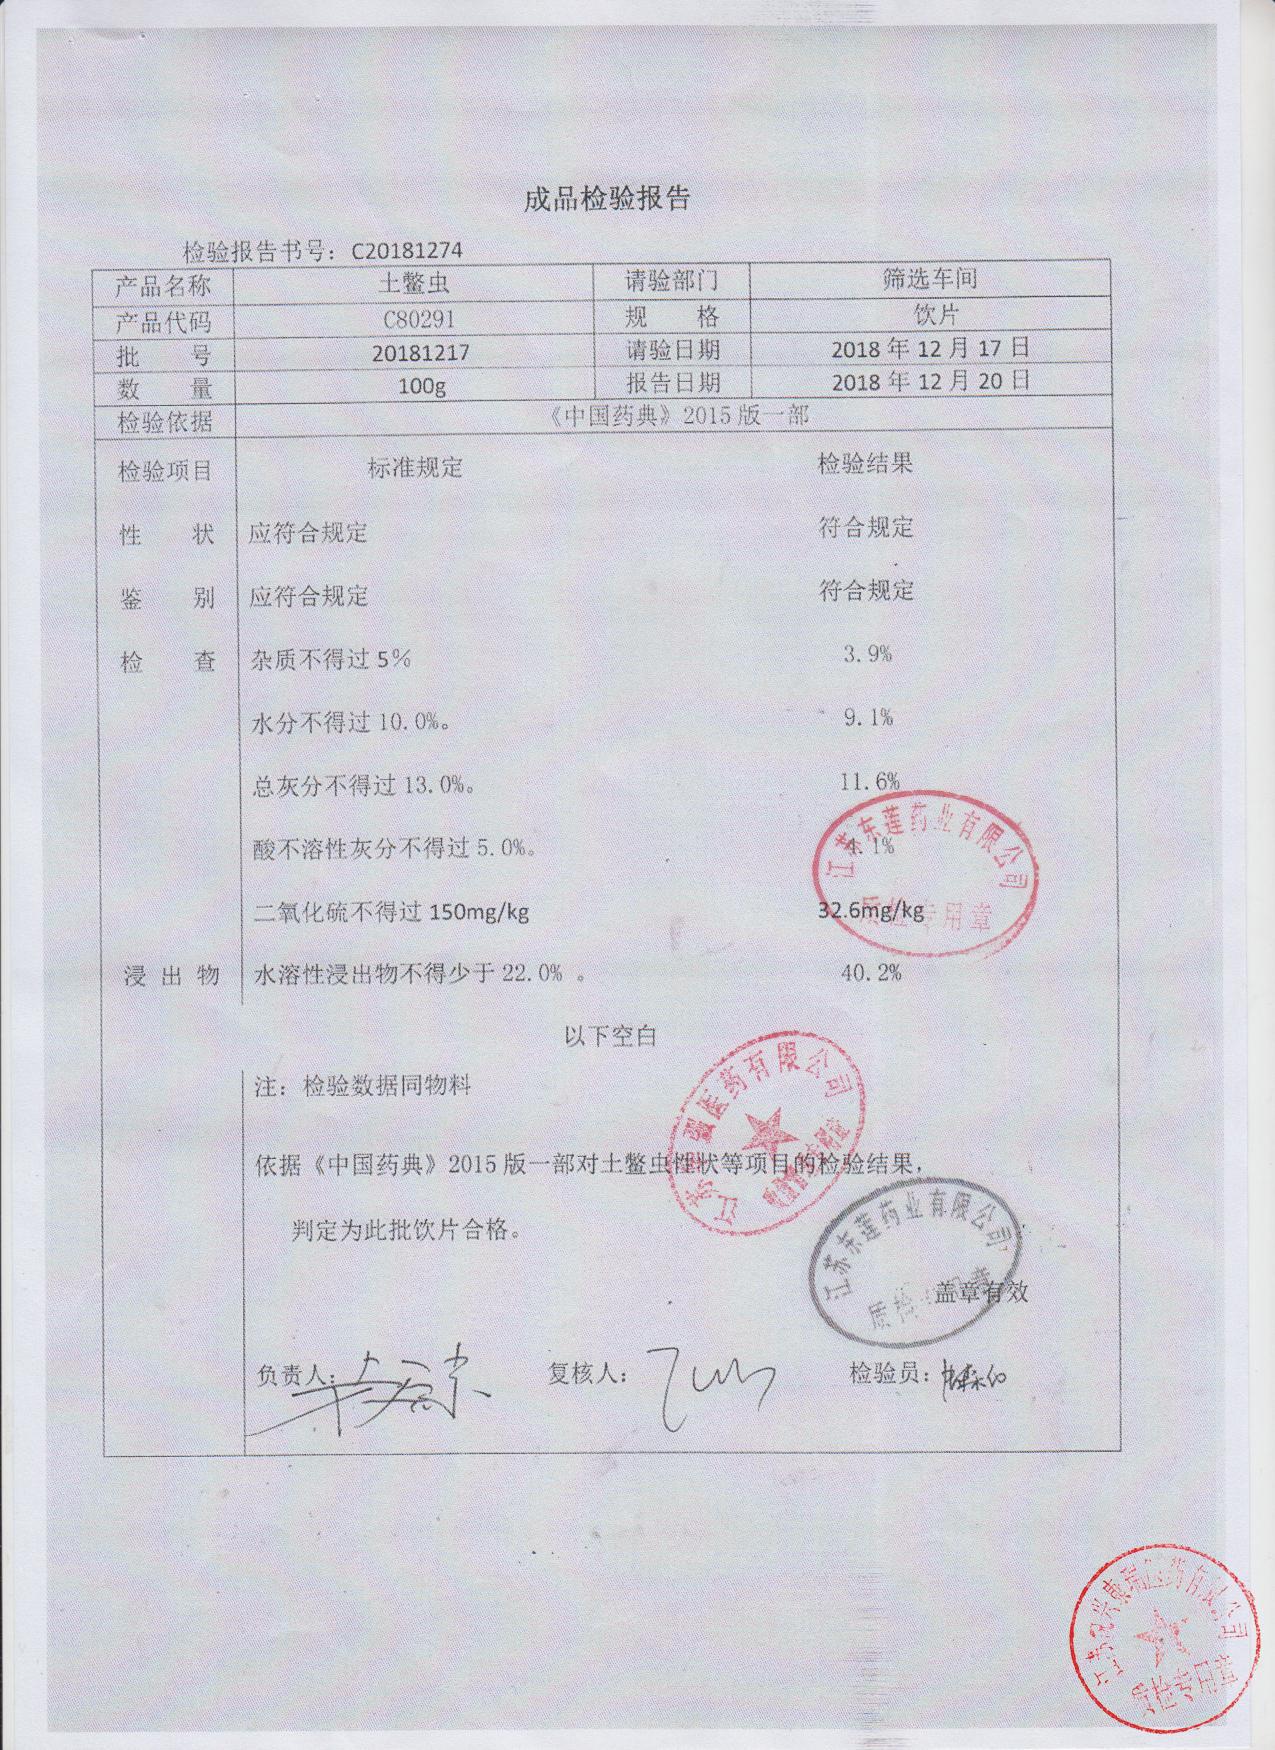 成品检验报告
检验报告书号：C20181274
产品名称 土鳖虫 请验部门 筛选车间
产品代码 C80291 规 格 饮片
批 号 20181217 请验日期 2018 年 12 月 17 日
数 量 100g 报告日期 2018 年 12 月 20 日
检验依据 《中国药典》2015 版一部
检验项目 标准规定 检验结果
性 状 应符合规定 符合规定
鉴 别 应符合规定 符合规定
检 查 杂质不得过 5% 3.9%
水分不得过 10.0%。 9.1%
总灰分不得过 13.0%。 11.6%
酸不溶性灰分不得过 5.0%。 4.1%
江苏东莲药业有限公司
质检专用章
二氧化硫不得过 150mg/kg 32.6mg/kg
浸 出 物 水溶性浸出物不得少于 22.0% 。 40.2%
以下空白
注：检验数据同物料
医药有限公司
依据《中国药典》2015 版一部对土鳖虫性状等项目的检验结果，
判定为此批饮片合格。
江苏东莲药业有限公司
质检专用章
盖章有效
负责人： 复核人： 检验员：
医药有限公司
质检专用章